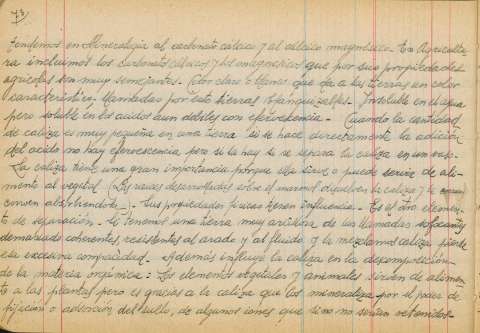 73
tendemos en Mineralogia al carbonato cálcico y al cálcico magnésico. En Agricultu-
ra incluimos los carbonatos cálcicos y los magnesicos que por sus propiedades
agrícolas son muy semejantes. Color claro o blanco que da a las tierras un color
característico llamadas por esto tierras blanquizales. Insoluble en el agua
pero soluble en los ácidos aun débiles con efervescencia. Cuando la cantidad
de caliza es muy pequeña en una tierra si se hace directamente la adición
del acido no hay efervescencia pero si la hay si se separa la caliza en un vaso.
La caliza tiene una gran importancia porque ella sirve o puede servir de ali-
mento al vegetal (Las raices desarrolladas sobre el marmol disuelven la caliza y la
absorbiendola). Sus propiedades fisicas tienen influencia. Es el otro elemen-
to de separación. Si tenemos una tierra muy arcillosa de las llamadas
demasiado coherentes, resistentes al arado y al fluido y la mezclamos caliza pierde
esa excesiva compacidad. Además influye la caliza en la descomposición
de la materia orgánica: Los elementos vegetales y animales sirven de alimen-
to a las plantas pero es gracias a la caliza que los mineraliza por el poder de
fijación o adsorción del suelo, de algunos iones que si no no serían retenidos